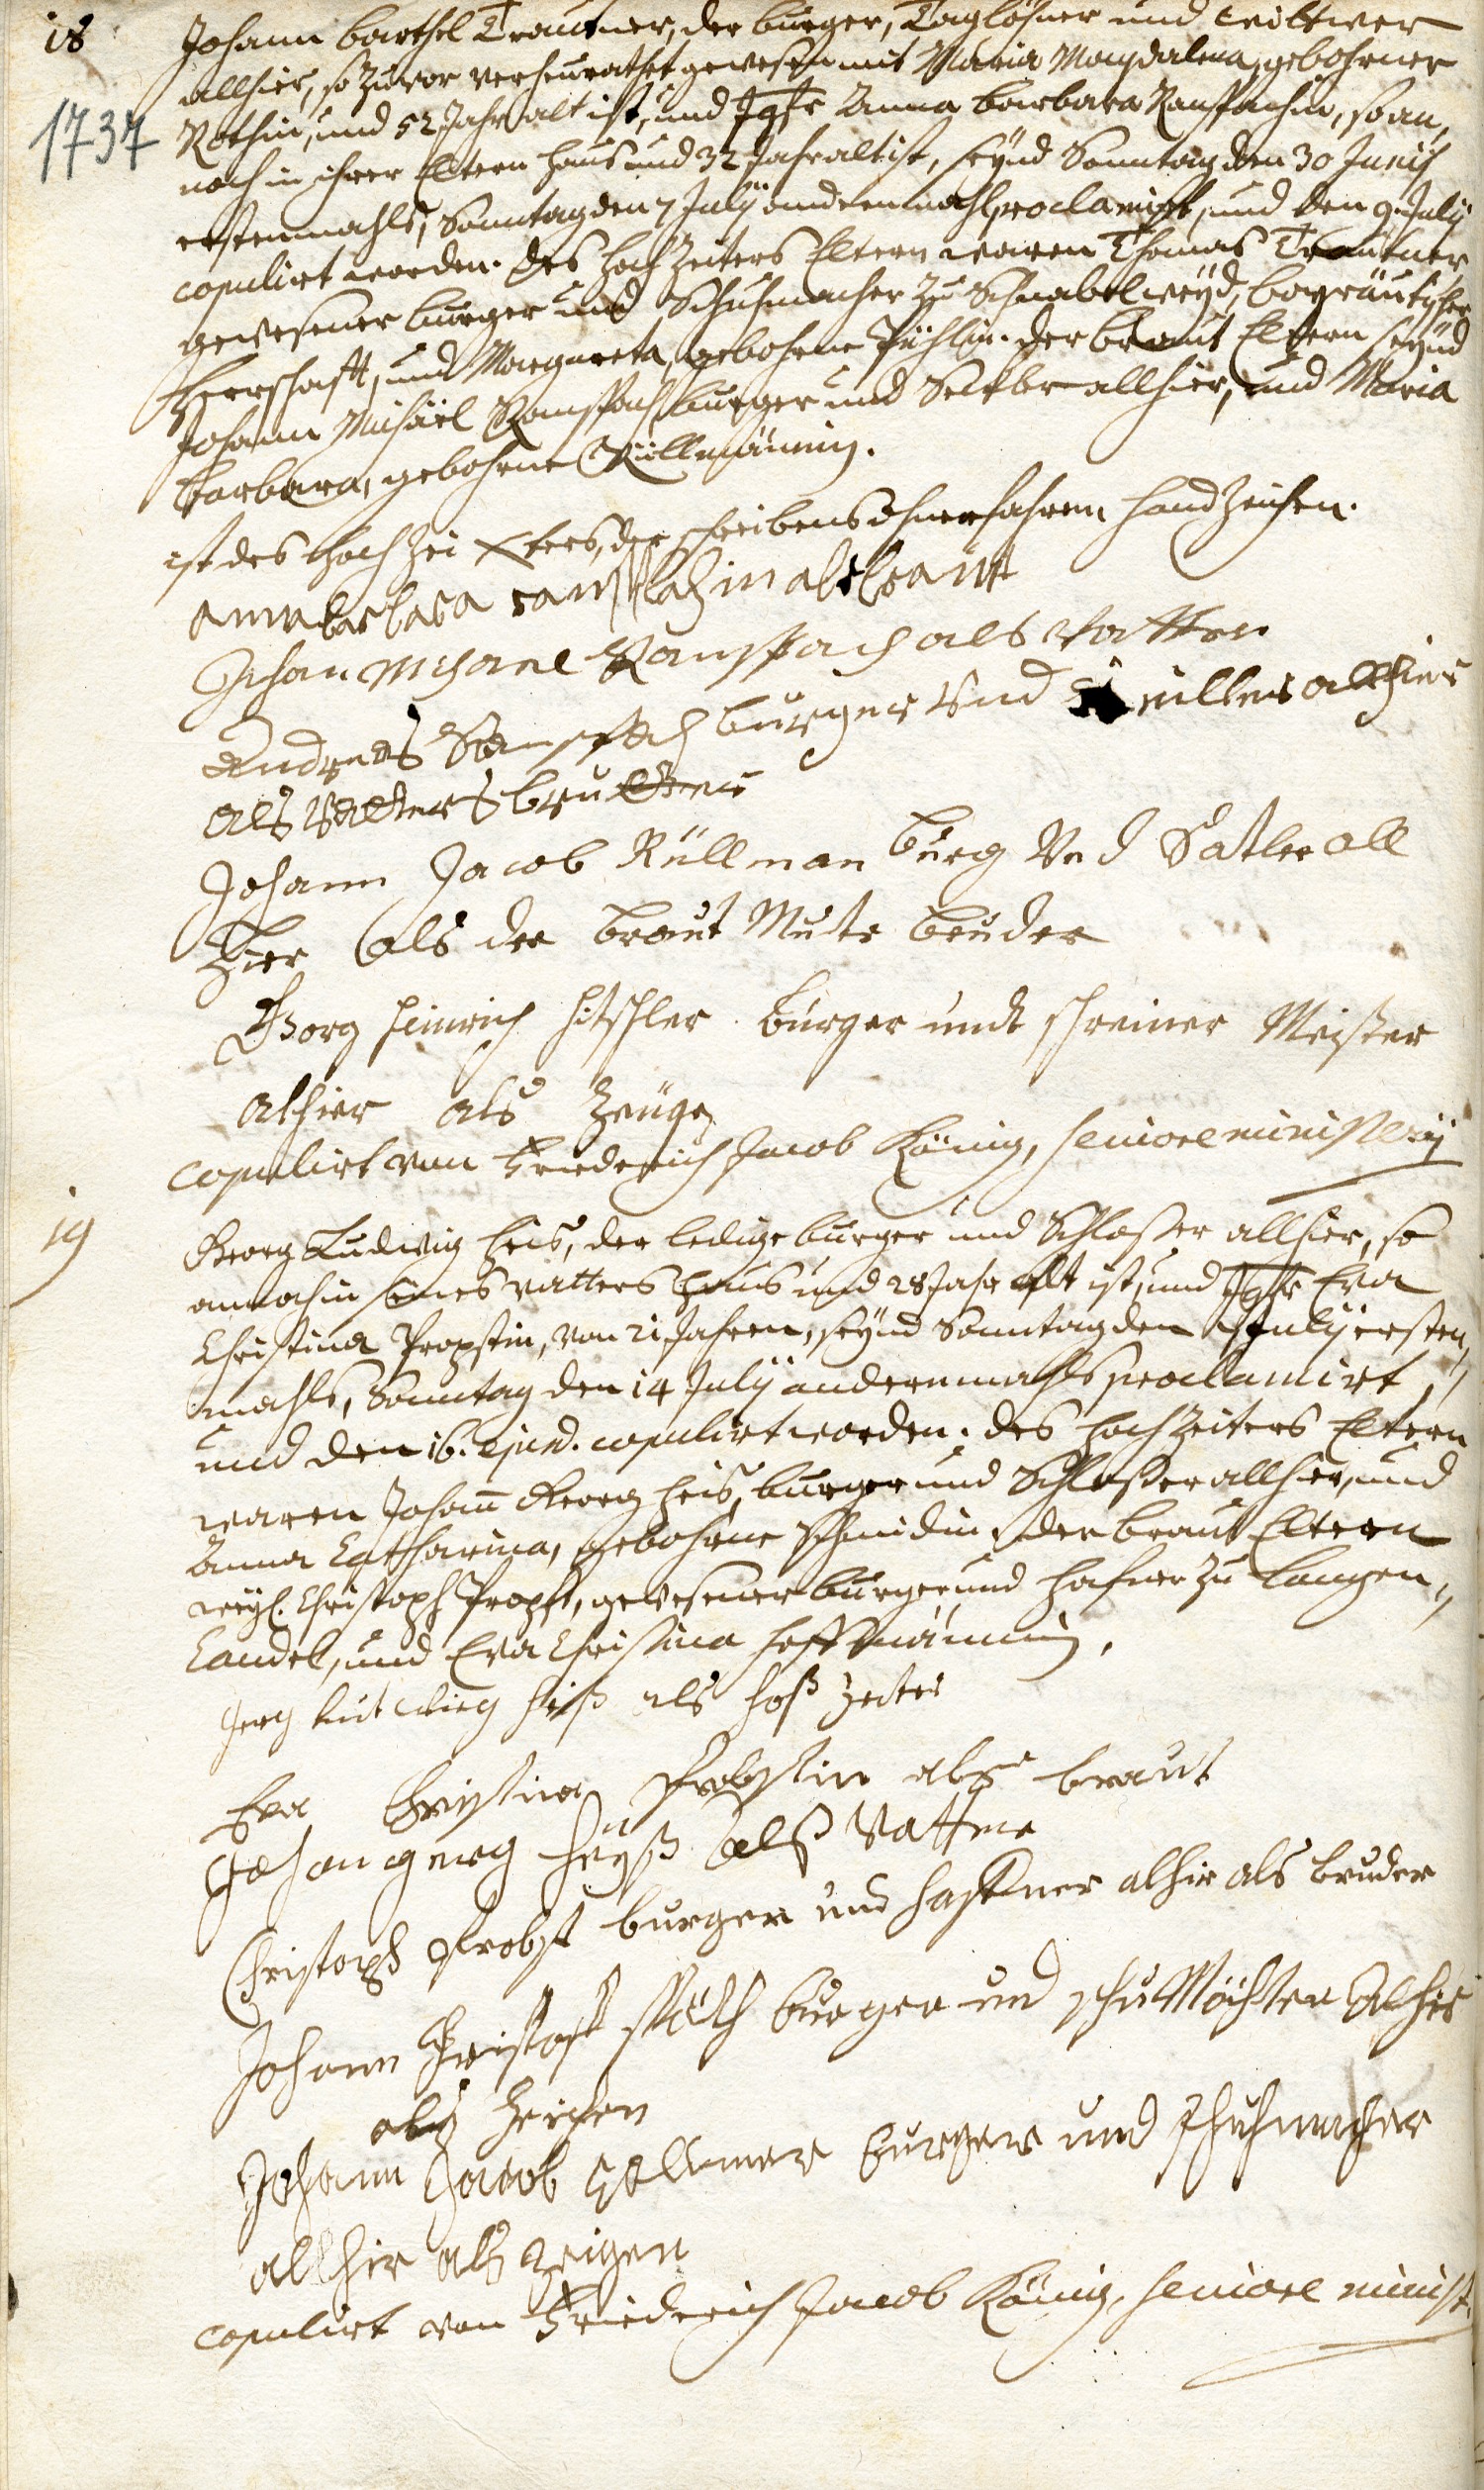 18 Johann barthel Trautner, der burger, Taglöhner und wittwer
allhier, so zuvor verheurathet gewesen mit Maria Magdalena, gebohrner
1737
Rothin, und 52 Jahr alt ist, und Jgfr Anna barbara Ranspachin, so an„
noch in ihrer Eltern haus und 32 Jahr alt ist, seynd Sonntag den 30 Junij
erstenmahls, Sonntag den 7 Julij andernmahls proclamirt, und den 9. Julij
copulirt worden. des hochzeiters Eltern waren Thomas Trautner
gewesener burger und Schuhmacher zu Schnabelweyd, bayräutischer
Herrschafft, und Margareta, gebohrne Pühlin. der braut Eltern seynd
Johann Michäel Ranspach burger und Seckler allhier, und Maria
barbara, gebohrne Rüllmännin.
ist des hochzei x ters, des schreibens ohnerfahren handzeichen.
anna barbara ranspachin als braut
Johan Michael Ranspach als Vatter
Andreas Ranspach burger Vnd allhier
als Vatters brutter
Johann Jacob Rüllman burg Vnd Satler all
hier als der braut Mutr bruder
Georg Heinrich Hitschler burger undt schreiner Meister
alhier als zeuge
copulirt von Friederich Jacob König, seniore ministerij
19
Georg Ludwig heis, der ledige burger und Schlosser allhier, so
annoch in seines vatters haus und 28 Jahr alt ist, und Jgfr Eva
Christina Propstin, von 21 Jahren, seynd Sonntag den 7 Julij ersten„
mahls, Sonntag den 14 Julij andernmahls proclamirt,
und den 16. ejusd. copulirt worden. des hochzeiters Eltern
waren Johann Georg heis, burger und Schlosser allhier, und
Anna Catharina, gebohrne Schmidin. der braut Eltern
weyl. Christoph Propst, gewesener burger und hafner zu Langen„
Candel, und Eva Christina hoffmännin.
Jerg lutwig heiß als hoßzeiter
Eva Christina Probstin als braut
Johan georg heyß alß Vatter
Christoph Probst burger und haffner alhir als bruder
Johann Christoff späth burger und schuMächter Alhir
als zeichen
Johann Jacob Vollmer burger und schuhmacher
allhir als zeigen
copulirt von Friederich Jacob König, seniore minist.